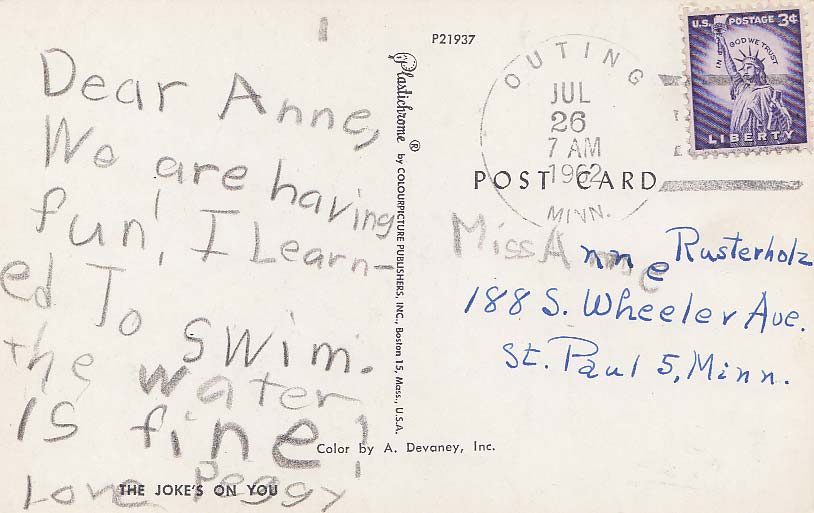 Dear Anne,
We are having
fun! I Learn-
ed To swim.
the water
is fine!
Love Peggy
THE JOKE'S ON YOU
Plastichrome ® by COLOURPICTURE PUBLISHERS, INC., Boston 15, Mass., U.S.A.
Color by A. Devaney, Inc.
P21937
OUTING
JUL
26
7 AM
1962
MINN.
U.S. POSTAGE 3¢
IN GOD WE TRUST
LIBERTY
POST CARD
Miss Anne Rusterholz
188 S. Wheeler Ave.
St. Paul 5, Minn.